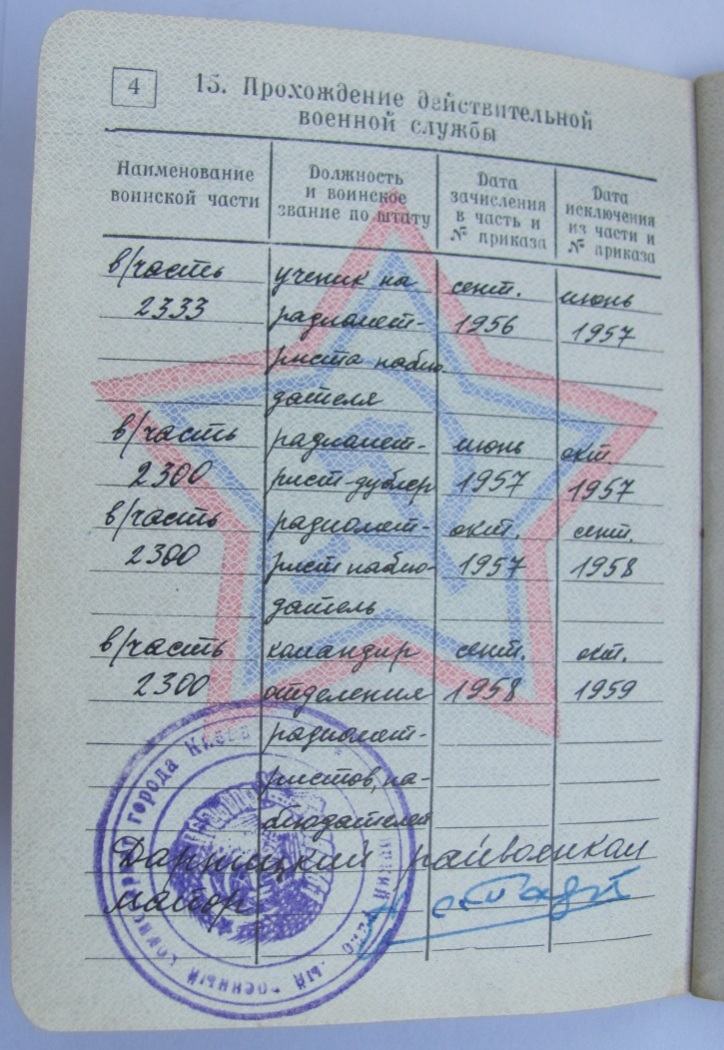 4
15. Прохождение действительной
военной службы
Наименование воинской части
Должность и воинское звание по штату
Дата зачисления в часть и № приказа
Дата исключения из части и № приказа
в/часть ученик на сент. июнь
2333 радиомет- 1956 1957
риста наблю
дателя
в/часть радиомет- июнь окт.
2300 рист-дублер 1957 1957
в/часть радиомет- окт. сент.
2300 рист наблю- 1957 1958
датель
в/часть командир сент. окт.
2300 отделения 1958 1959
радиомет-
ристов, на-
блюдателей
Дарницкий райвоенком
майор
города Киева